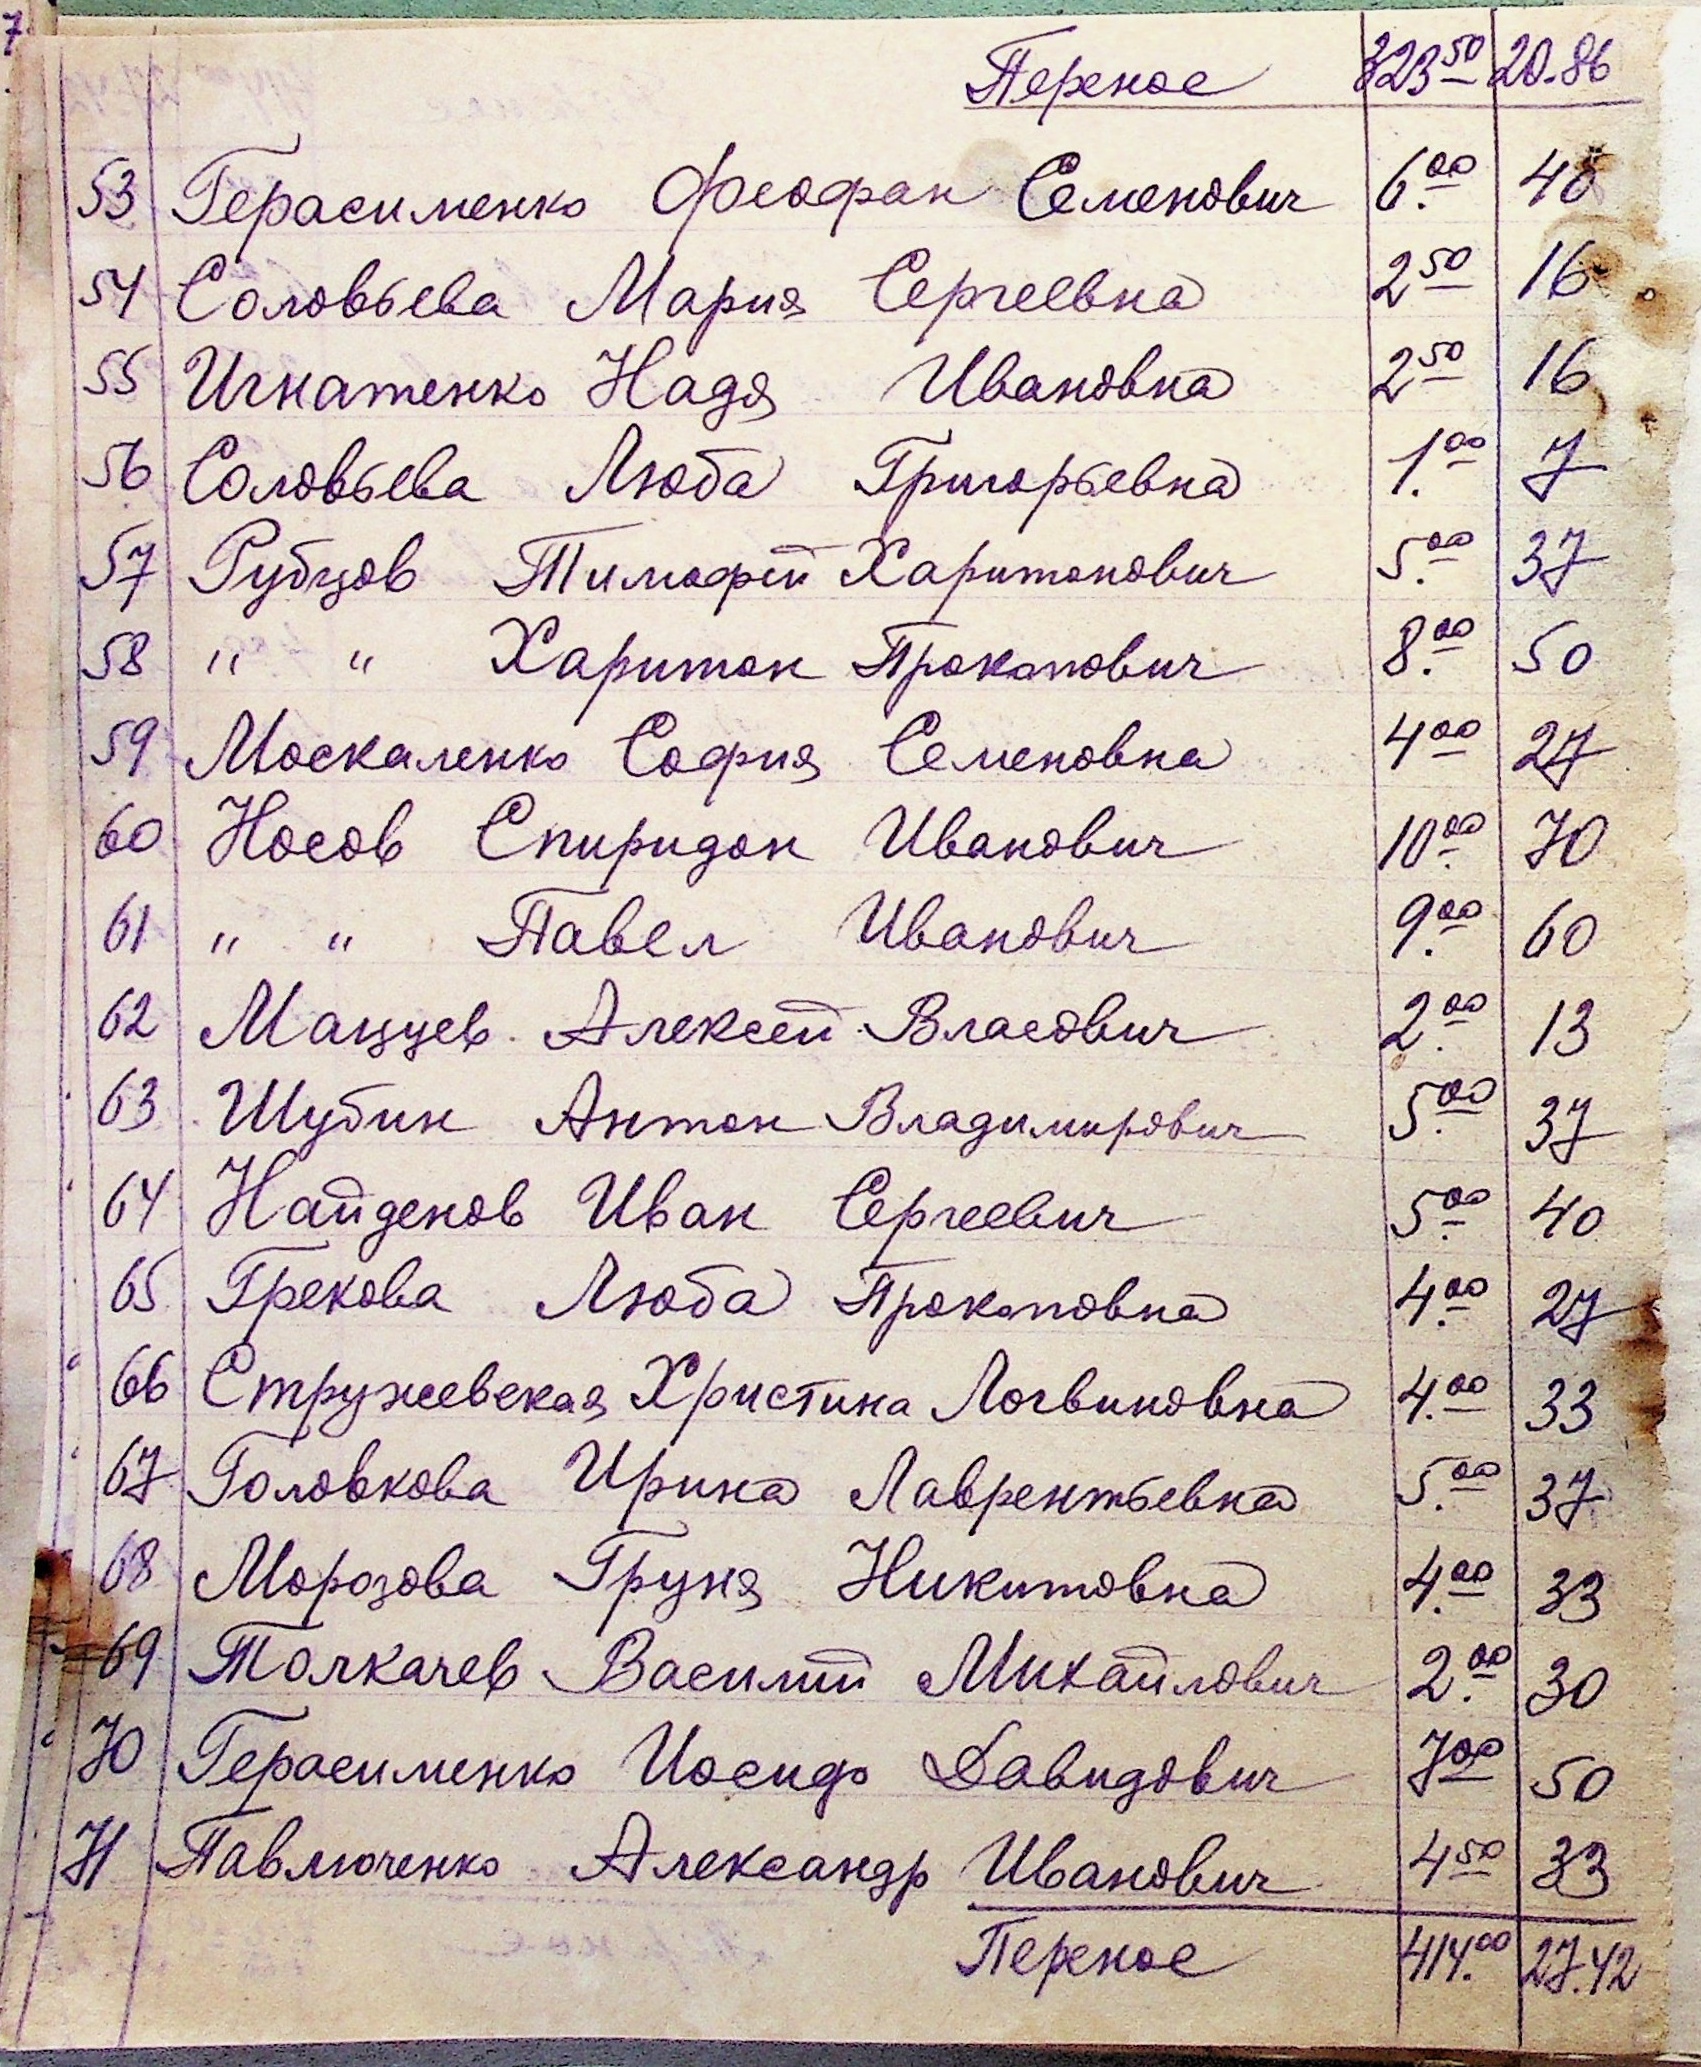 7
Перенос 323 50 20.86
53 Герасименко Феофан Семенович 6.00 40
54 Соловьева Мария Сергеевна 2 50 16
55 Игнатенко Надя Ивановна 2 50 16
56 Соловьева Люба Григорьевна 1.00 7
57 Рубцов Тимофей Харитонович 5.00 37
58 " " Харитон Прокопович 8.00 50
59 Москаленко София Семеновна 4 00 27
60 Носов Спиридон Иванович 10.00 70
61 " " Павел Иванович 9.00 60
62 Мацуев Алексей Власович 2.00 13
63 Шубин Антон Владимирович 5.00 37
64 Найденов Иван Сергеевич 5.00 40
65 Грекова Люба Прокоповна 4.00 27
66 Стружевская Христина Логвиновна 4.00 33
67 Головкова Ирина Лаврентьевна 5.00 37
68 Морозова Груня Никитовна 4.00 33
69 Толкачев Василий Михайлович 2.00 30
70 Герасименко Иосиф Давидович 7 00 50
71 Павлюченко Александр Иванович 4 50 33
Перенос 414.00 27.42